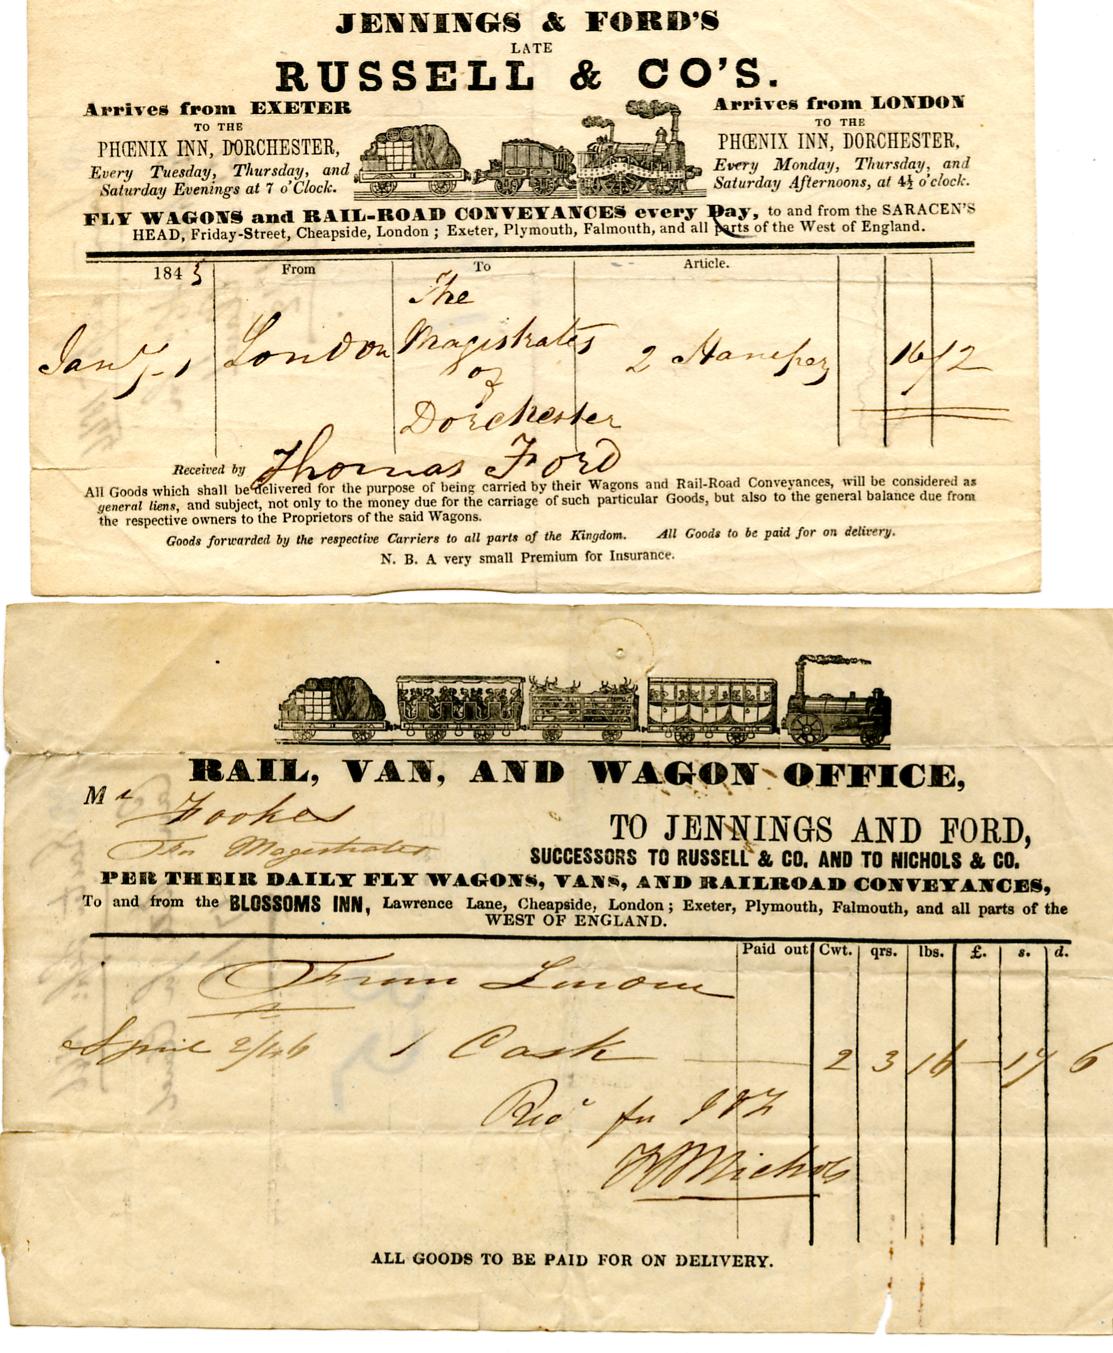 JENNINGS & FORD'S
LATE
RUSSELL & CO'S.
Arrives from EXETER
TO THE
PHŒNIX INN, DORCHESTER,
Every Tuesday, Thursday, and
Saturday Evenings at 7 o'Clock.
Arrives from LONDON
TO THE
PHŒNIX INN, DORCHESTER,
Every Monday, Thursday, and
Saturday Afternoons, at 4½ o'clock.
FLY WAGONS and RAIL-ROAD CONVEYANCES every Day, to and from the SARACEN'S
HEAD, Friday-Street, Cheapside, London; Exeter, Plymouth, Falmouth, and all parts of the West of England.
1845 From To Article.
Jany 1 London The Magistrates of Dorchester 2 16/2
Received by Thomas Ford
All Goods which shall be delivered for the purpose of being carried by their Wagons and Rail-Road Conveyances, will be considered as
general liens, and subject, not only to the money due for the carriage of such particular Goods, but also to the general balance due from
the respective owners to the Proprietors of the said Wagons.
Goods forwarded by the respective Carriers to all parts of the Kingdom. All Goods to be paid for on delivery.
N. B. A very small Premium for Insurance.
RAIL, VAN, AND WAGON OFFICE,
Mr Fookes
For Magistrates
TO JENNINGS AND FORD,
SUCCESSORS TO RUSSELL & CO. AND TO NICHOLS & CO.
PER THEIR DAILY FLY WAGONS, VANS, AND RAILROAD CONVEYANCES,
To and from the BLOSSOMS INN, Lawrence Lane, Cheapside, London; Exeter, Plymouth, Falmouth, and all parts of the
WEST OF ENGLAND.
Paid out Cwt. qrs. lbs. £. s. d.
From London
April 2/46 1 Cask 2 3 16 17 6
Recd for J & F
Nichols
ALL GOODS TO BE PAID FOR ON DELIVERY.